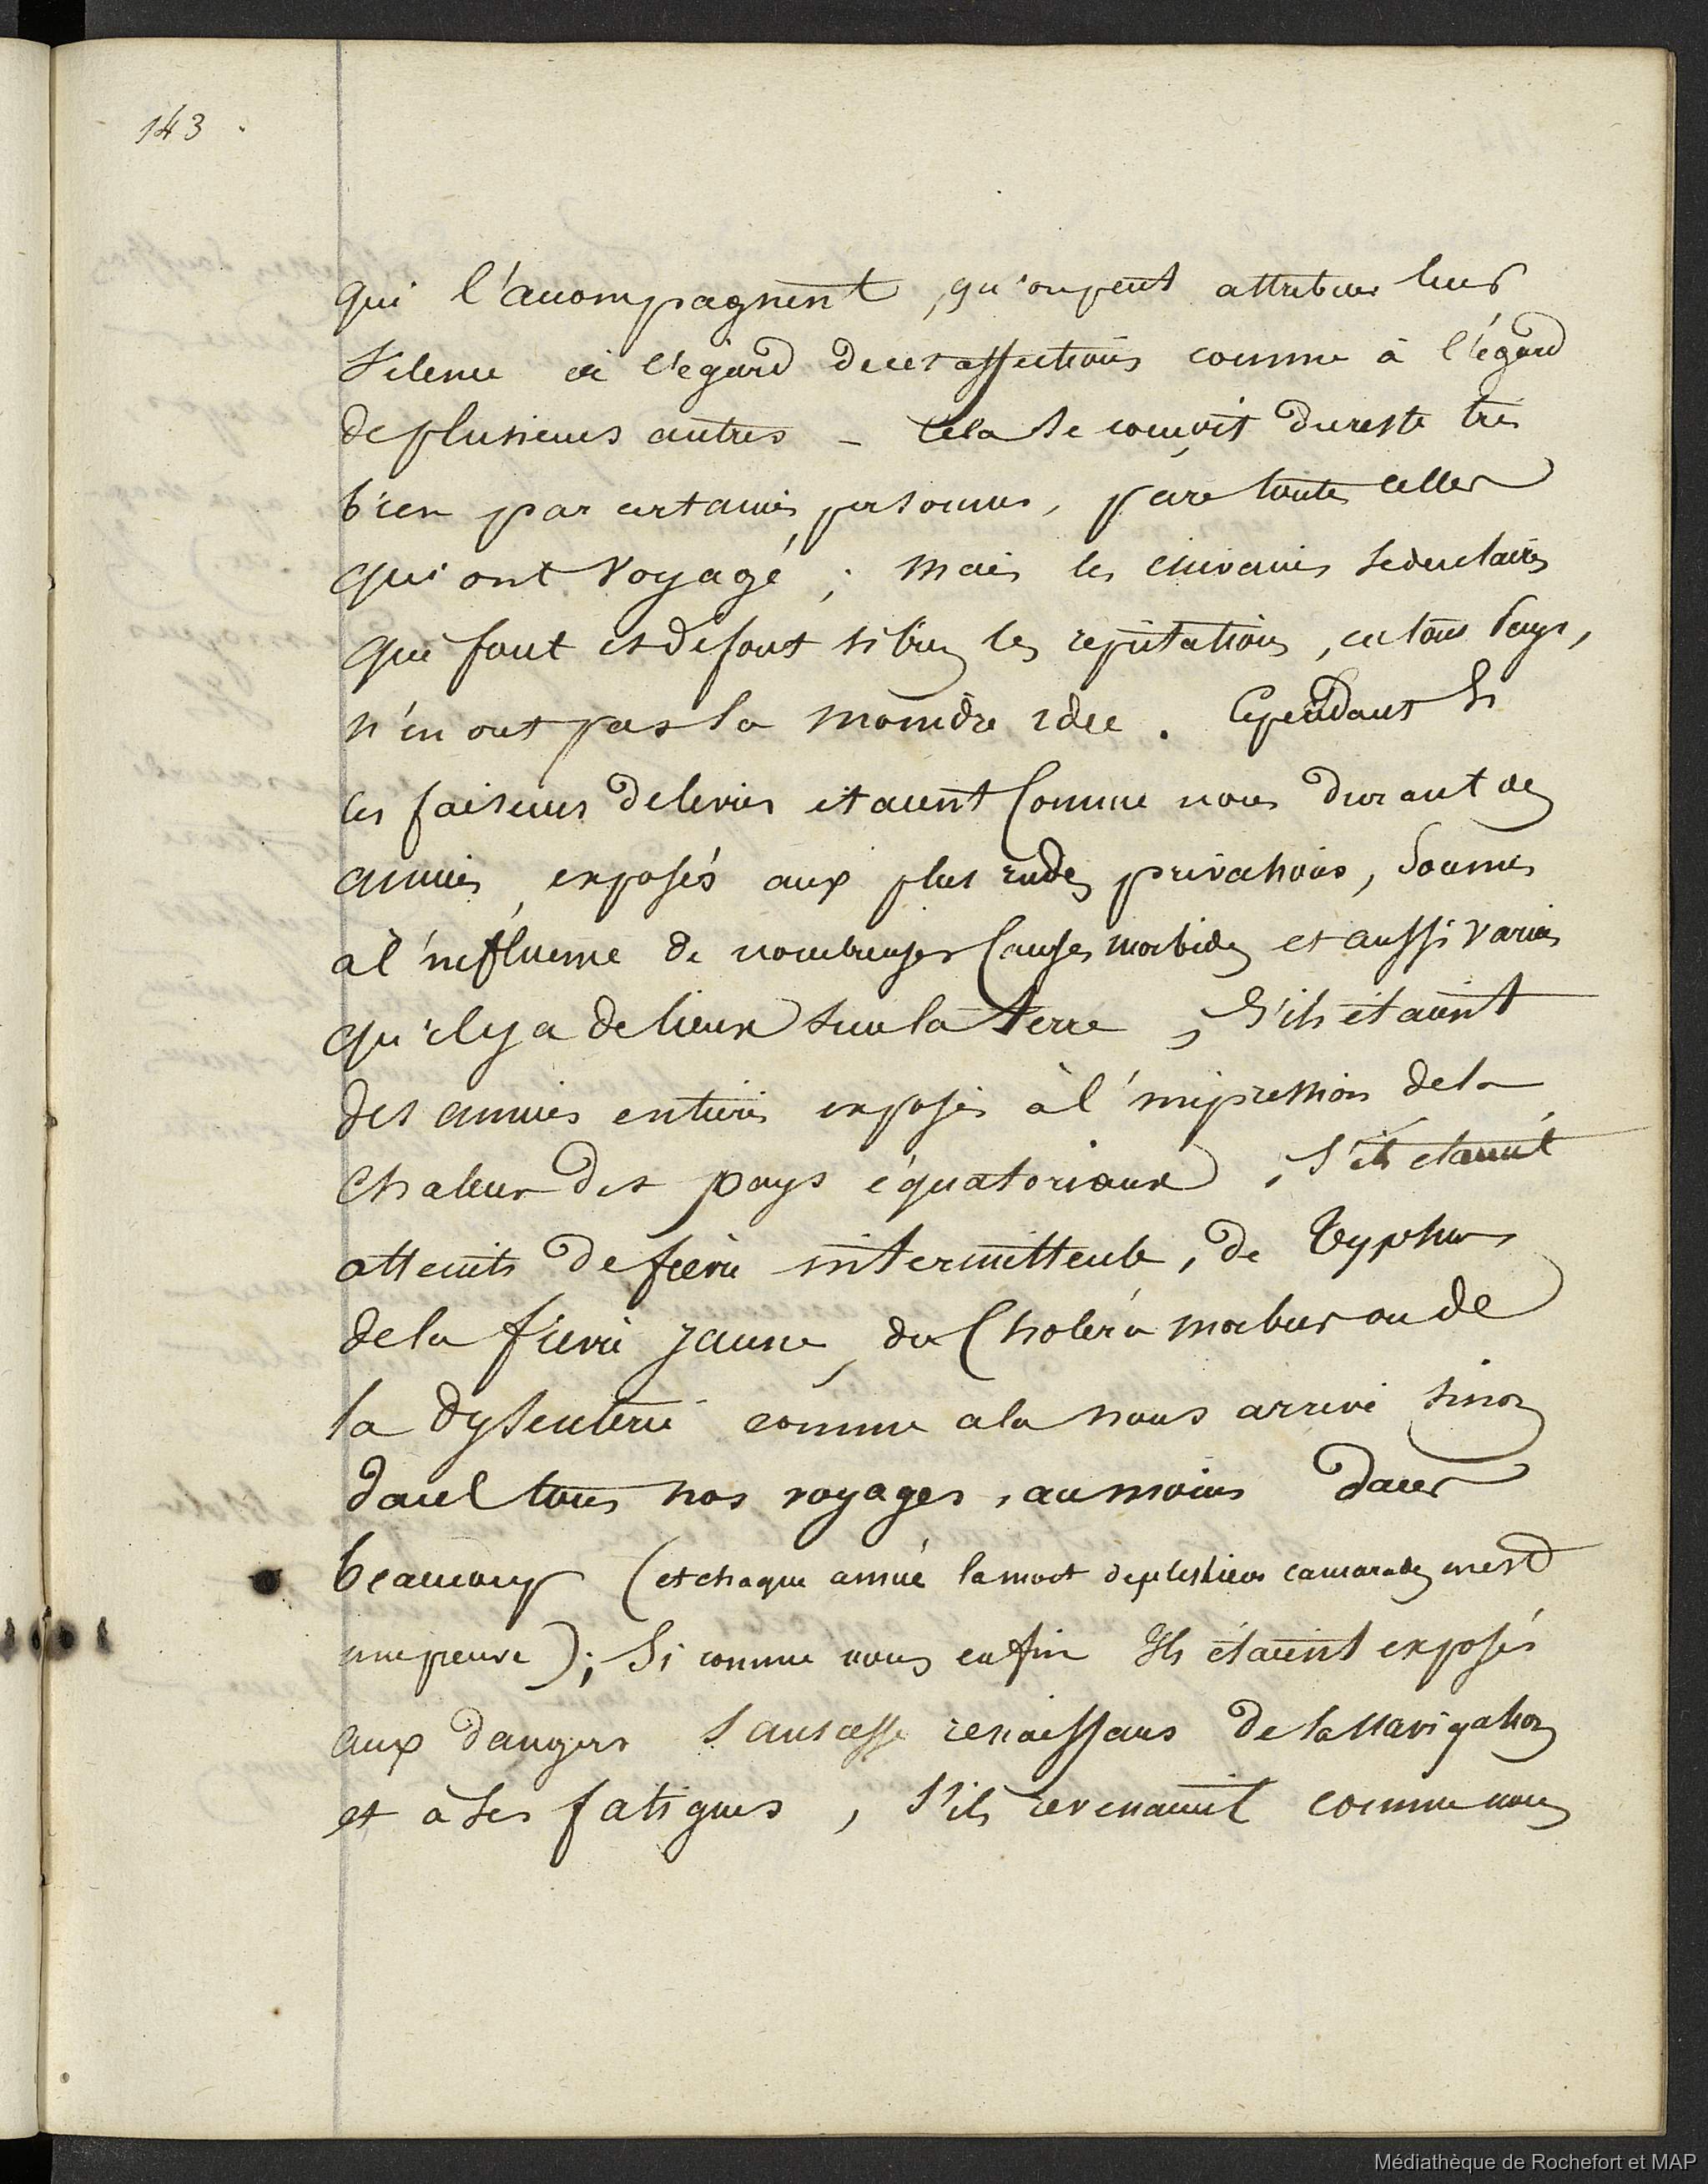 143.
qui l'accompagnent, qu'on peut attribuer leur
silence à l'égard de ces affections comme à l'égard
de plusieurs autres - Cela se conçoit du reste très
bien par certaines personnes, par toutes celles
qui ont voyagé; mais les écrivains sedentaires
qui font et defont si bien les réputations, en tous pays,
n'en ont pas la moindre idée. Cependant si
les faiseurs de livres étaient comme nous durant des
années, exposés aux plus rudes privations, soumis
à l'influence de nombreuses causes morbides et aussi variées
qu'il y a de lieux sur la terre, s'ils étaient
des années entières exposés à l'impression de la
chaleur des pays équatoriaux, s'ils étaient
atteints de fièvre intermittente, de Typhus
de la fièvre jaune, du Choléra morbus ou de
la dysenterie comme cela nous arrive sinon
dans tous nos voyages, au moins dans
beaucoup (et chaque année la mort de plusieurs camarades en est
une preuve); Si comme nous enfin Ils étaient exposés
aux dangers sans cesse renaissans de la navigation
et à ses fatigues, s'ils revenaient comme nous
Médiathèque de Rochefort et MAP